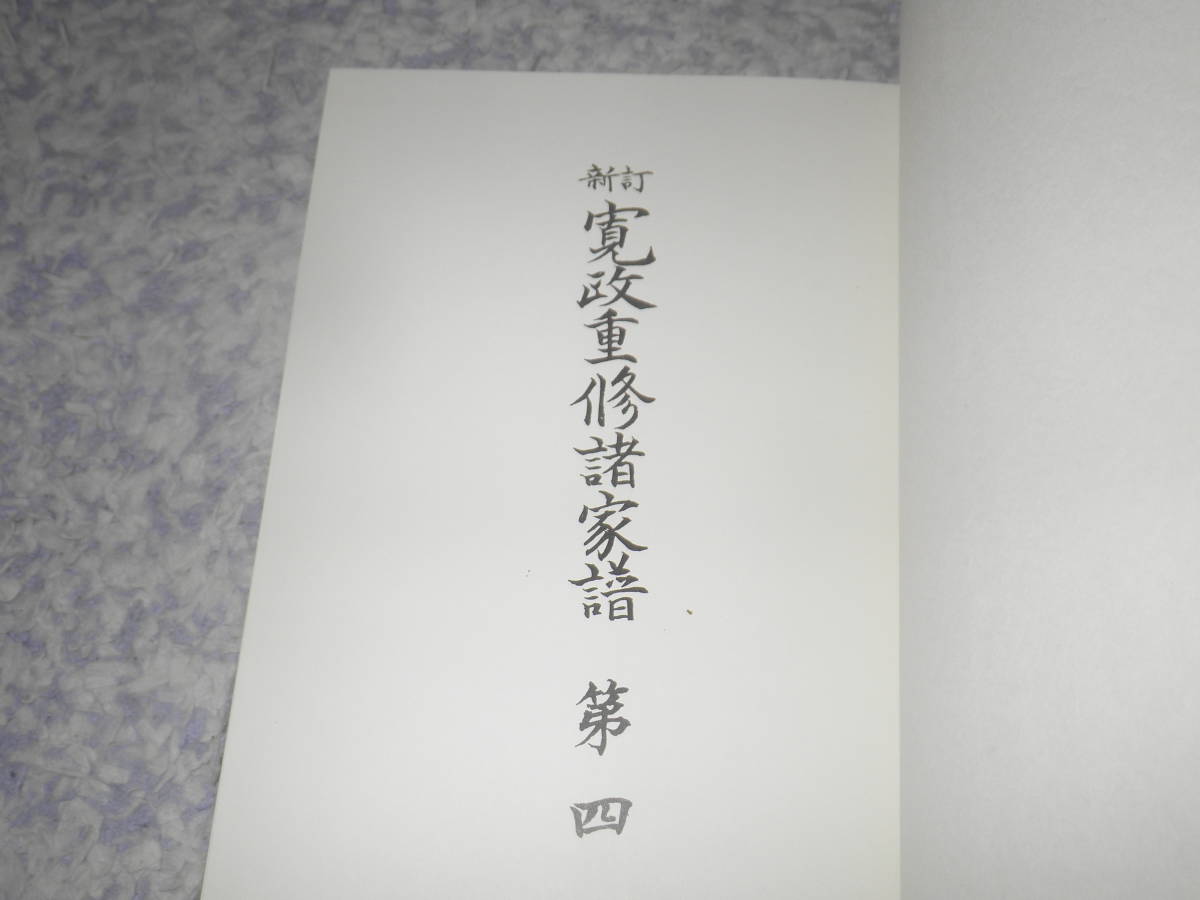 新訂
寛政重修諸家譜 第四